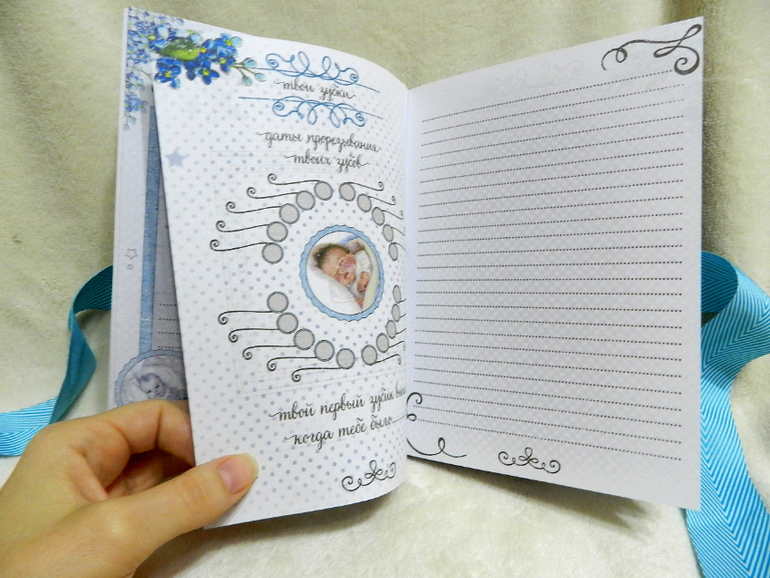 твои зубки
даты прорезывания
твоих зубов
твой первый зубик
когда тебе было